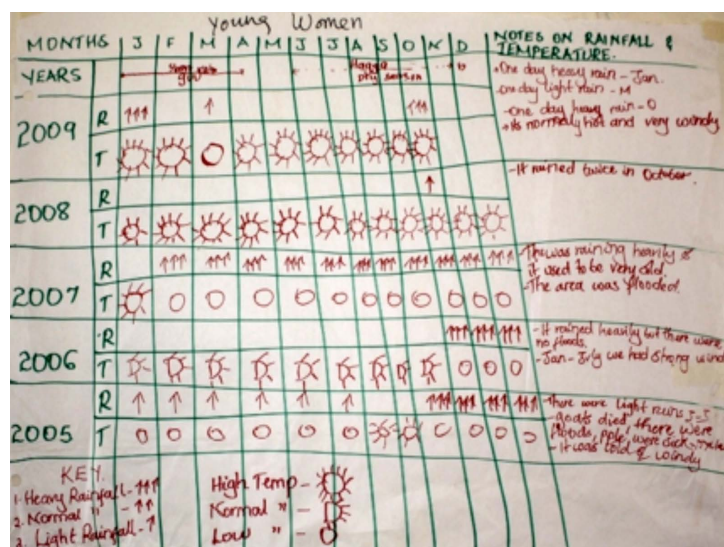 Young Women
MONTHS J F M A M J J A S O N D NOTES ON RAINFALL &
TEMPERATURE.
YEARS
Hagga
dry season
- One day heavy rain - Jan.
- one day light rain - M
- One day heavy rain - O
- Its normally hot and very windy
2009 R
T
- It rained twice in October.
2008 R
T
- The was raining heavily &
it used to be very cold.
- The area was flooded.
2007 R
T
- It rained heavily but there were
no floods.
- Jan - July we had strong wind
2006 R
T
- There were light rains J-J
- goats died there were
floods, were sick
- It was cold & windy
2005 R
T
KEY.
1. Heavy Rainfall -
2. Normal " -
3. Light Rainfall -
High Temp -
Normal " -
Low " -